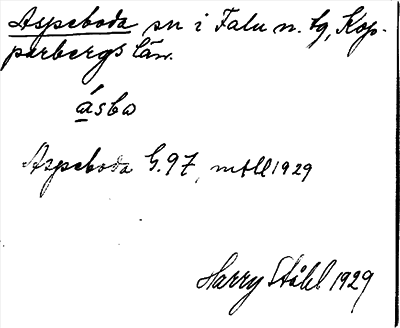 Aspeboda sn i Falu n. tg, Kop-
parbergs län.
ásbo
Aspeboda G. 97, mtll 1929
Harry Ståhl 1929